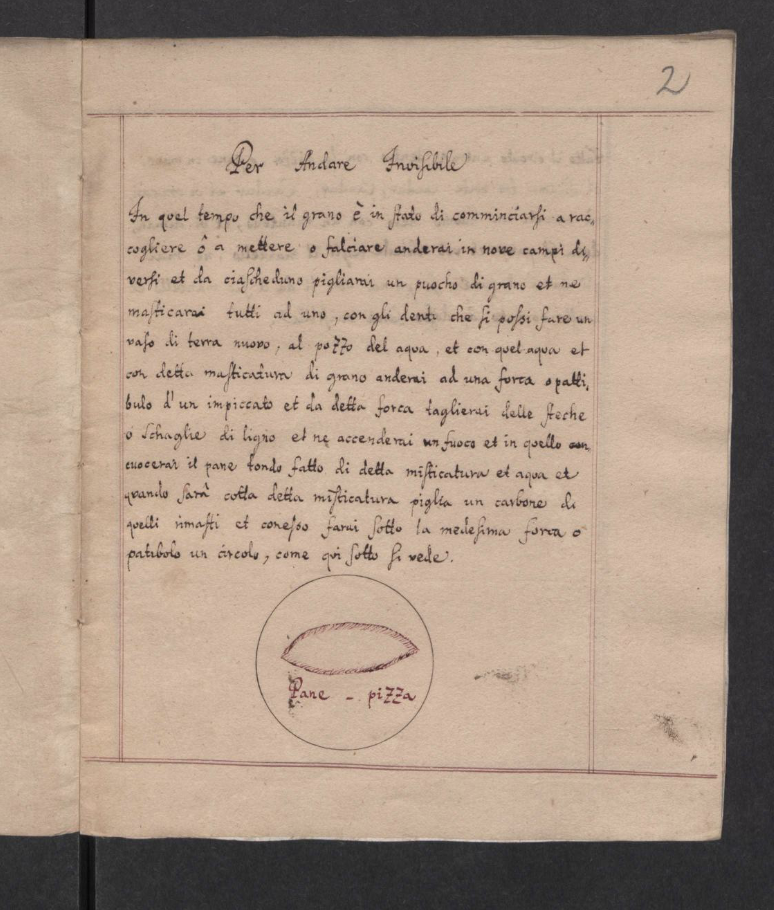 2
Per Andare Invisibile
In quel tempo che il grano è in stato di comminciarsi a rac,
cogliere ô a mettere o falciare anderai in nove campi di,
versi et da ciascheduno pigliarai un puocho di grano et ne
masticarai tutti ad uno, con gli denti che si possi fare un
vaso di terra nuovo, al pozzo del aqua, et con quel aqua et
con detta masticatura di grano anderai ad una forca o patti,
bulo d'un impiccato et da detta forca taglierai delle steche
o schaglie di ligno et ne accenderai un fuoco et in quello
cuocerai il pane tondo fatto di detta misticatura et aqua et
quando sarà cotta detta misticatura piglia un carbone di
quelli rimasti et conesso farai sotto la medesima forca o
patibolo un circolo, come qui sotto si vede.
Pane - pizza